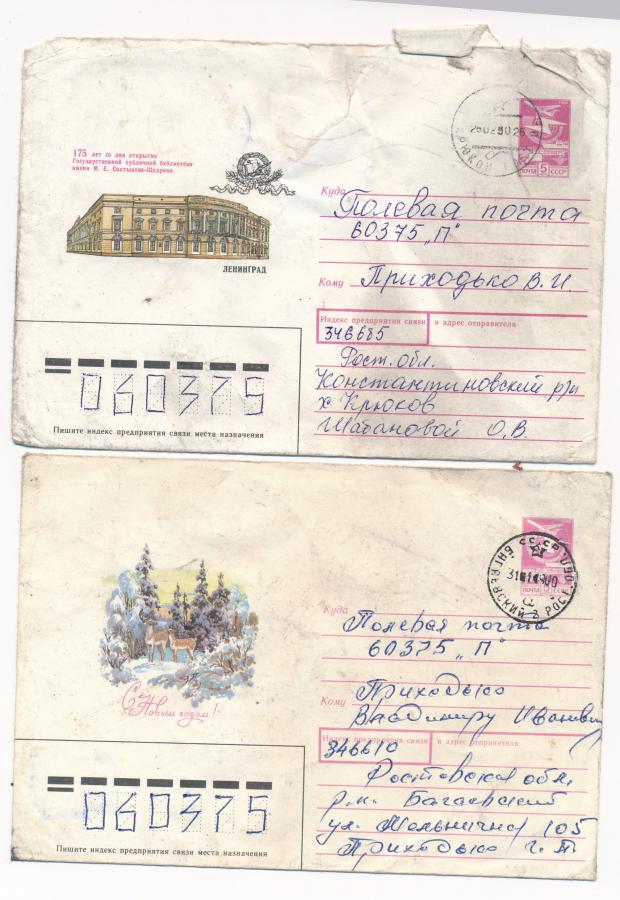 175 лет со дня открытия
Государственной публичной библиотеки
имени М. Е. Салтыкова-Щедрина
ЛЕНИНГРАД
ПОЧТА 5 СССР
Куда Полевая почта
60375 „П"
Кому Приходько В. И.
Индекс предприятия связи и адрес отправителя
346685
Рост. обл.
Константиновский р/н
х Крюков
Шабановой О. В.
060375
Пишите индекс предприятия связи места назначения
С Новым годом!
СССР
Куда Полевая почта
60375 „П"
Кому Приходько
Владимиру Иванович
Индекс предприятия связи и адрес отправителя
346610
Ростовская обл,
р-н. Багаевский
ул. Мельнична 105
Приходько
060375
Пишите индекс предприятия связи места назначения